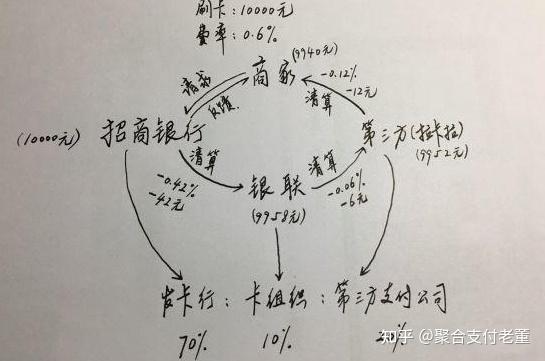 刷卡:10000元
费率:0.6%
商家(9940元)
请求
反馈
清算
-0.12%
-12元
(10000元)招商银行
第三方(拉卡拉)
(9952元)
清算
-0.42%
-42元
银联
(9958元)
清算
-0.06%
-6元
发卡行:卡组织:第三方支付公司
70% 10% 20%
知乎 @聚合支付老董